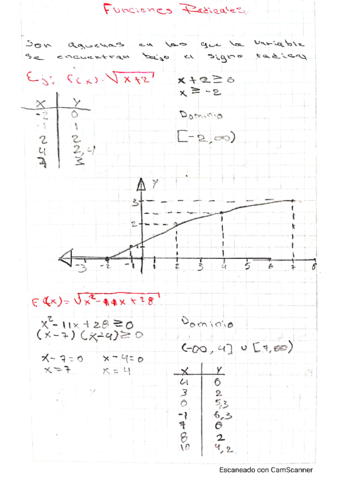 Funciones Radicales.
Son aquellas en las que la variable
se encuentran bajo el signo radical
Ej: f(x)=√x+2
x+2≥0
x≥-2
Dominio
[-2,∞)
X Y
-2 0
-1 1
2 2
4 2,4
7 3
Y
3
2
1
-3 -2 -1 0 1 2 3 4 5 6 7 8
f(x)=√x²-11x+28
x²-11x+28≥0
(x-7)(x-4)≥0
x-7=0 x-4=0
x=7 x=4
Dominio
(-∞,4] ∪ [7,∞)
X Y
4 0
3 2
0 5,3
-1 6,3
7 0
8 2
10 4,2
Escaneado con CamScanner